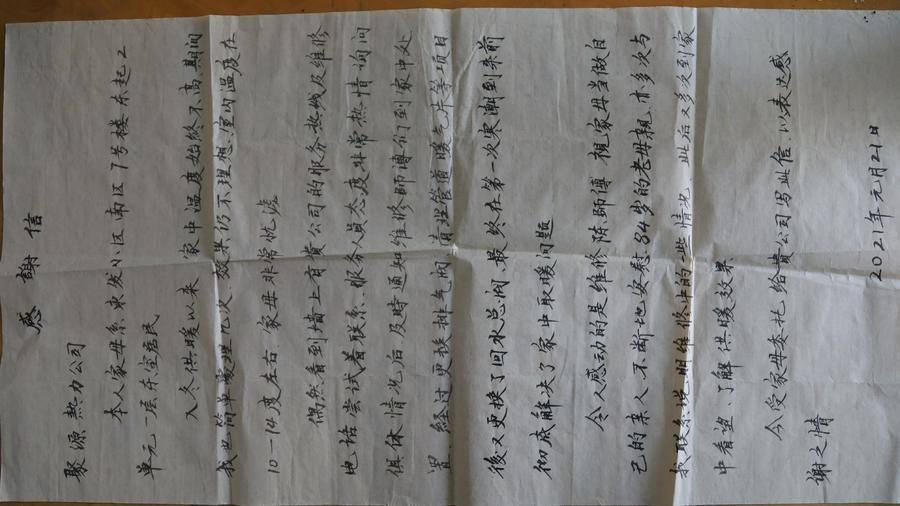 感謝信
聚源热力公司
本人家母系来发小区南区7号楼东起2
单元一层东室居民
入冬供暖以来 家中温度始终不高,期间
我也简单處理几次、效果仍不理想,室内温度在
10—14度左右,家母非常忧虑
偶然看到墙上有贵公司的服务热线及维修
电话尝试着联系、服务人员态度非常热情 询问
俱体情况后及時通知维修師傅们到家中处
置 经过更换排气阀、清理管道暖气片等项目
後又更换了回水总阀、最终在第一次寒潮到来前
彻底解决了家中取暖问题
令人感动的是维修陈師傅 视家母当做自
己的亲人、不断地安慰84岁的老母親、亦多次与
我联系说明维修中的一些情况、此后又多次到家
中看望、了解供暖效果
今受家母委托给貴公司写此信以表达感
謝之情
2021年元月21日